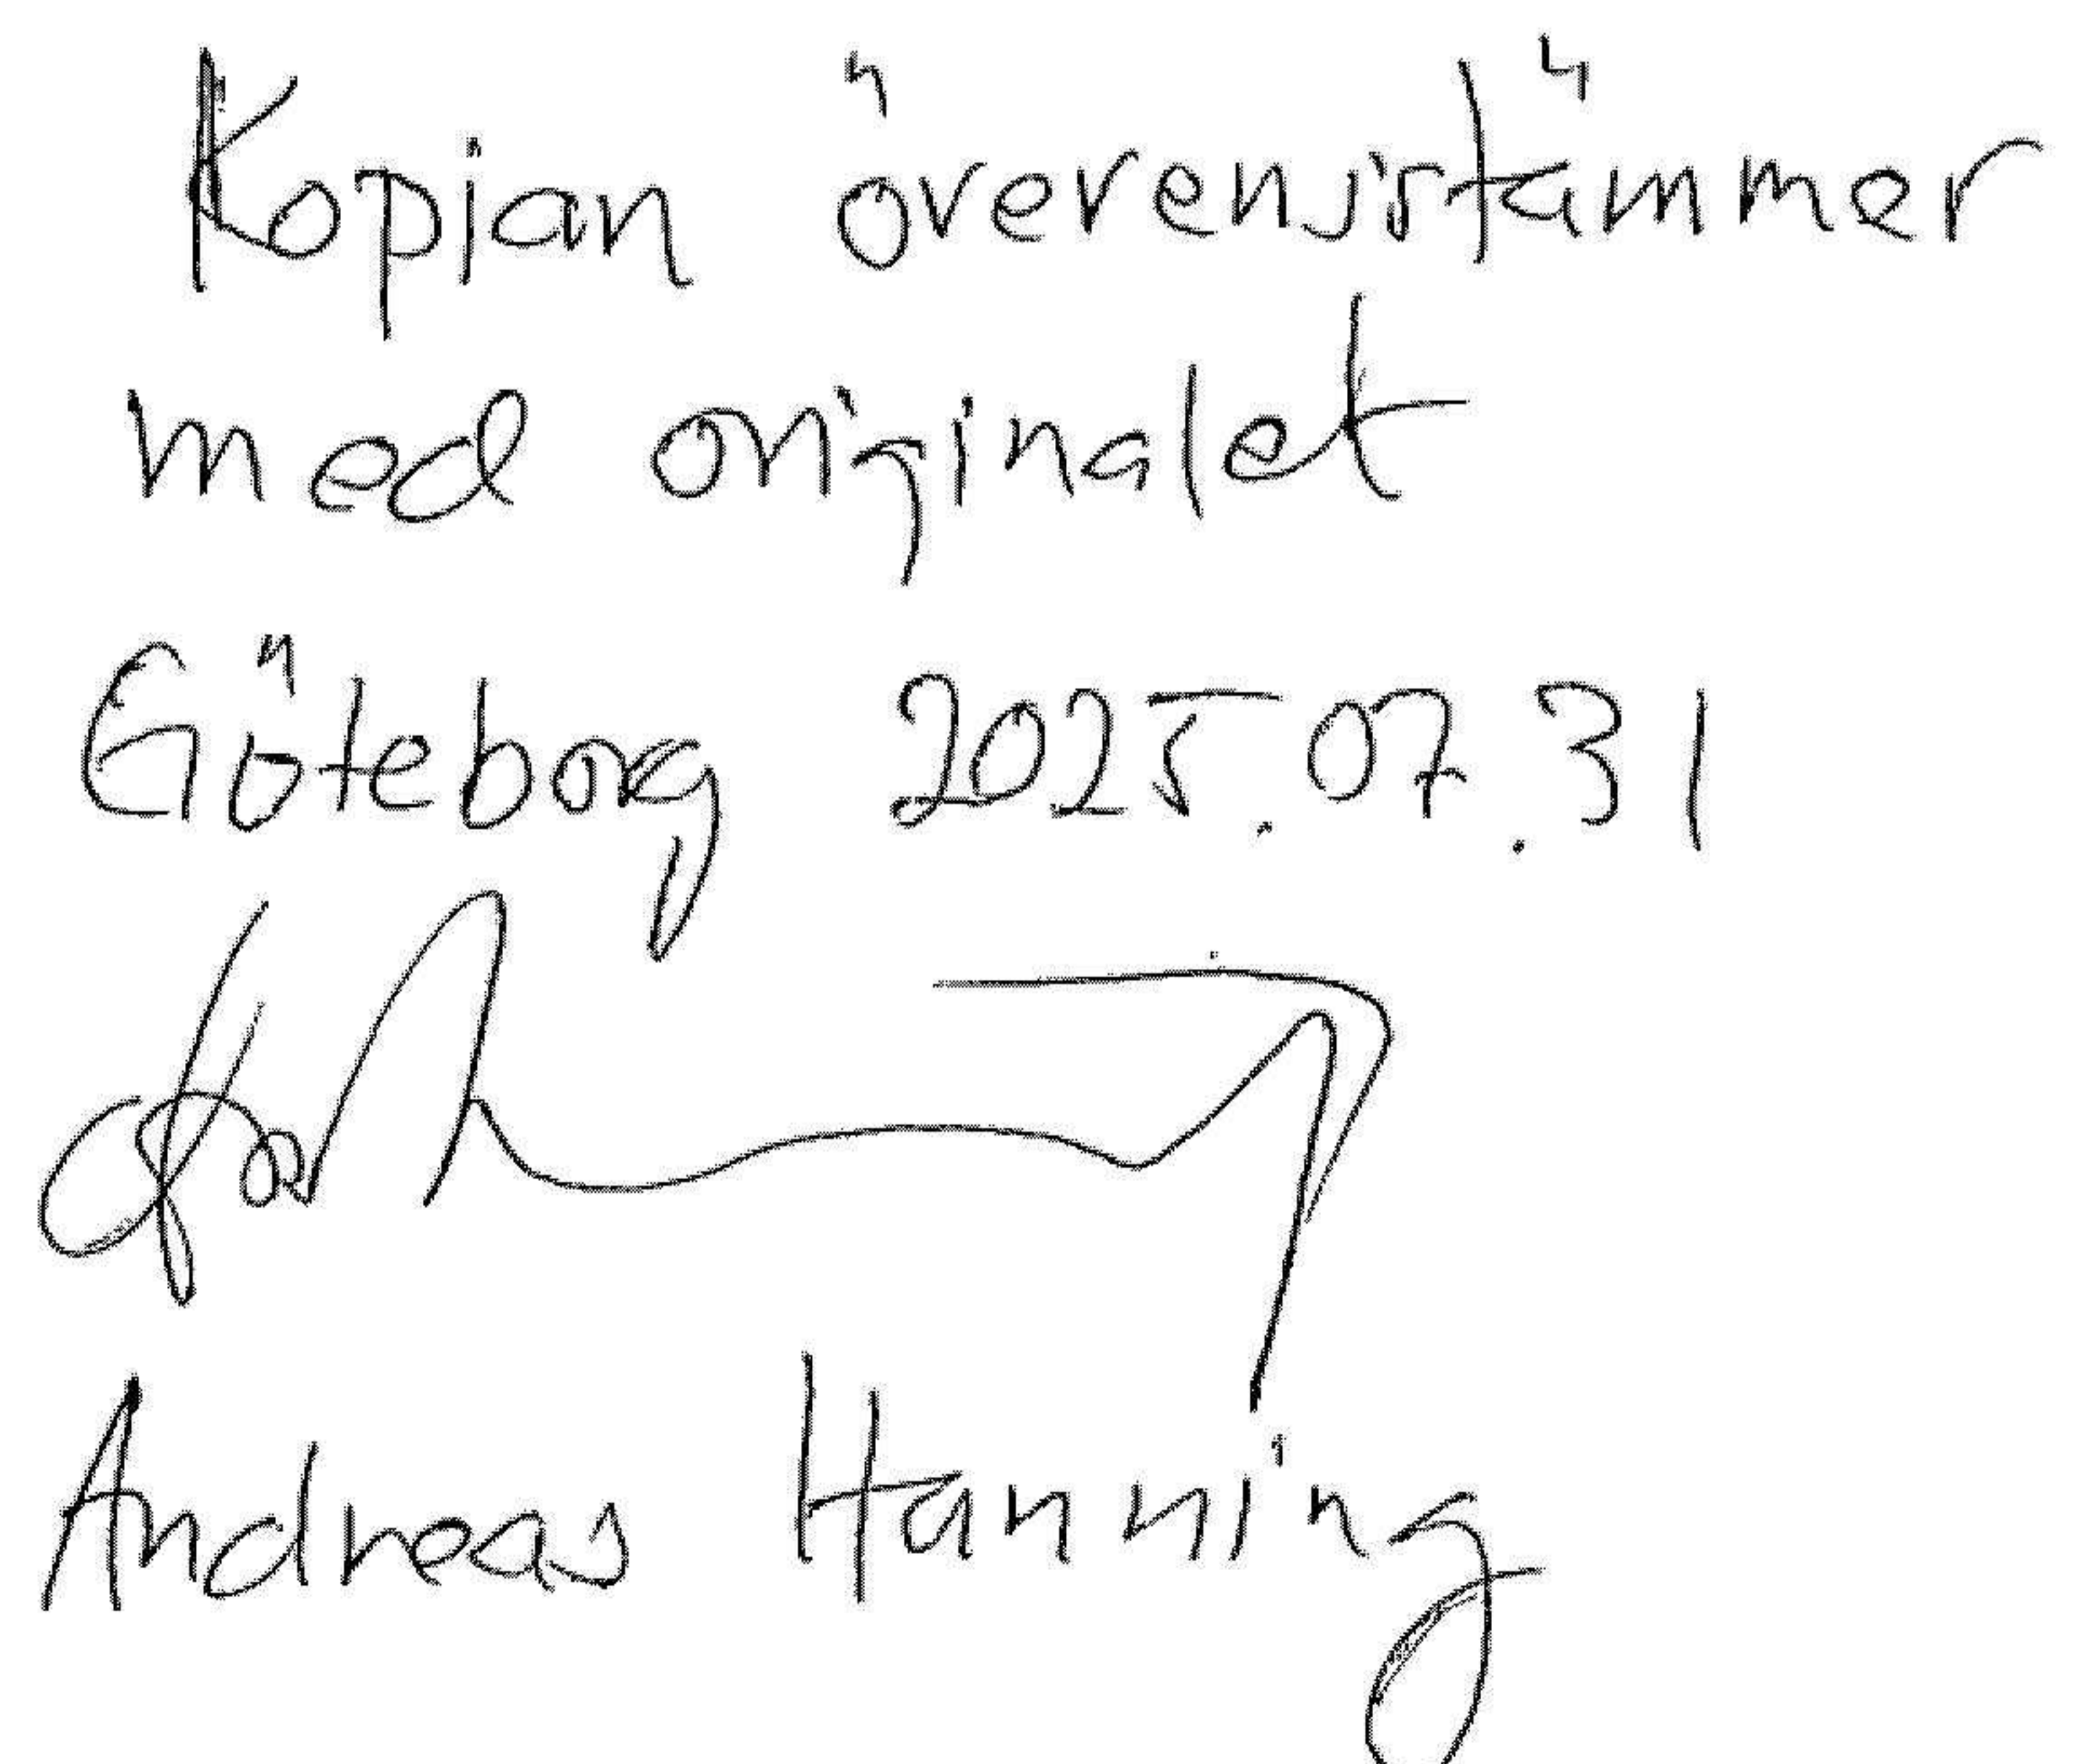 Kopian överensstämmer
med originalet
Göteborg 2025.07.31
Andreas Hanning